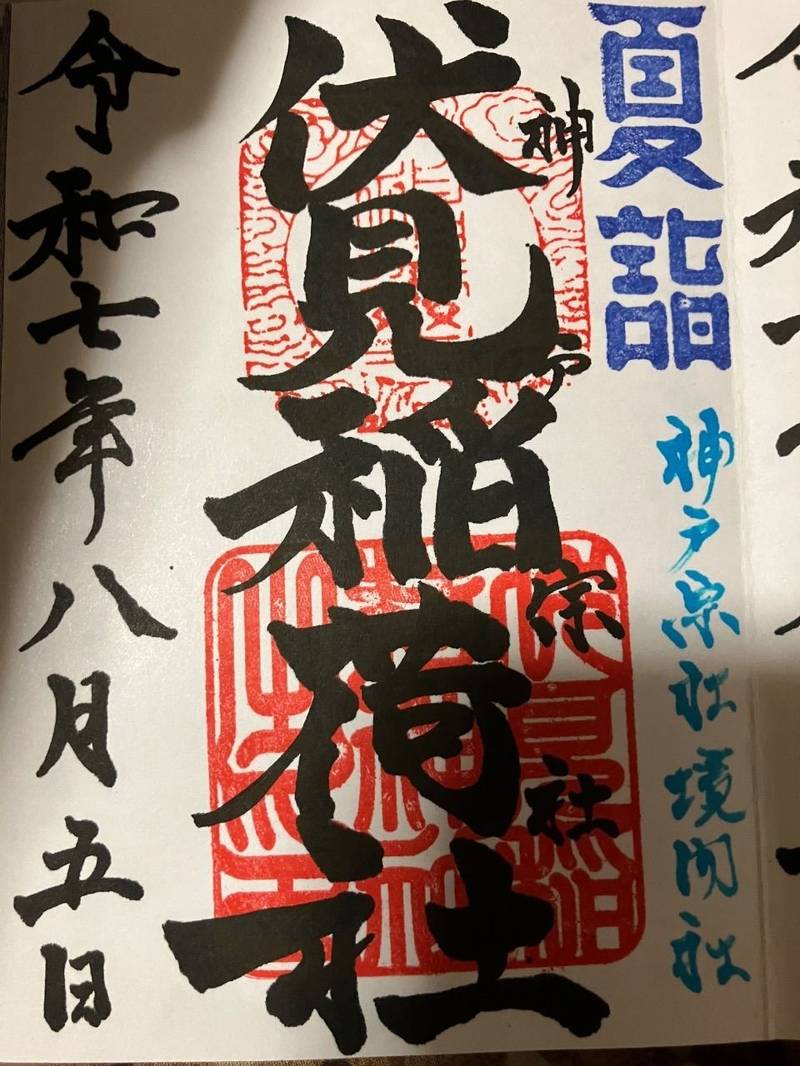 夏詣
神戸宗社境内社
神戸宗社
伏見稲荷社
令和七年八月五日